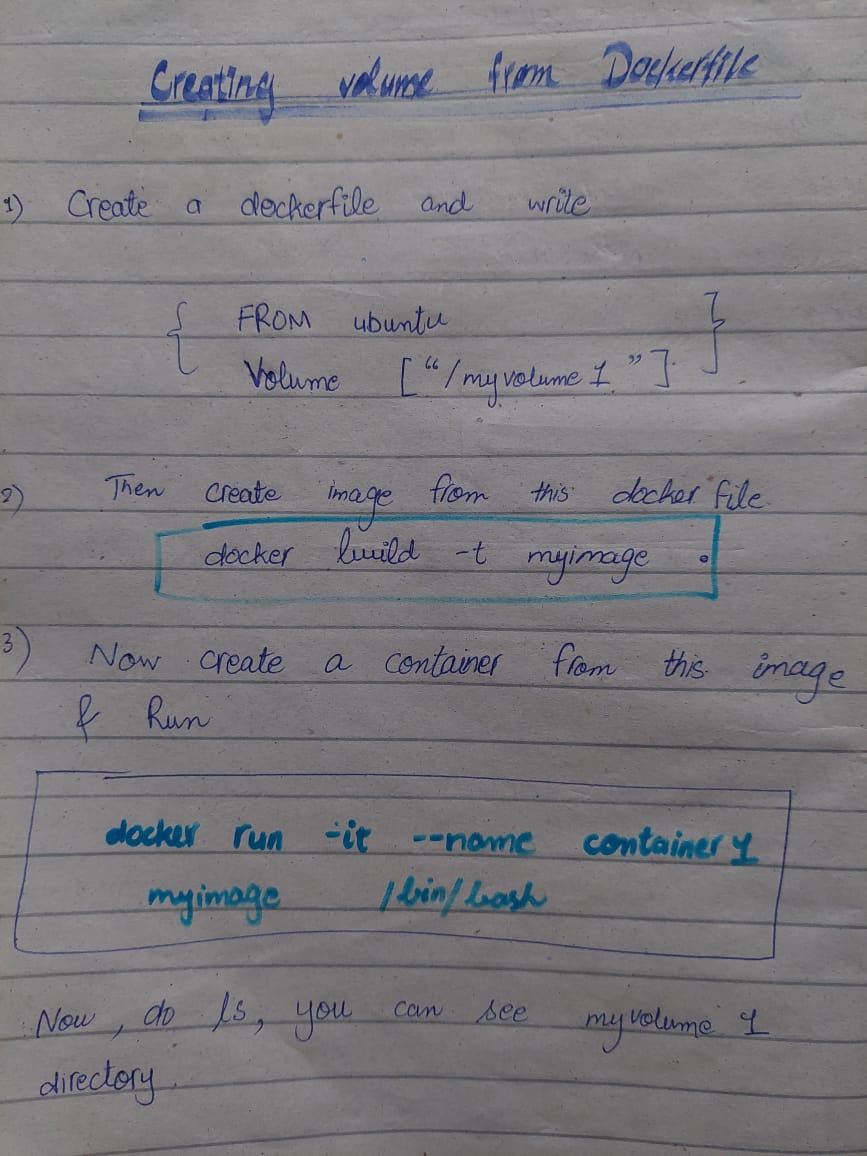 Creating volume from Dockerfile
1) Create a dockerfile and write
{ FROM ubuntu
Volume ["/myvolume 1"] }
2) Then create image from this docker file.
docker build -t myimage .
3) Now create a container from this image
& Run
docker run -it --name container 1
myimage /bin/bash
Now, do ls, you can see myvolume 1
directory.